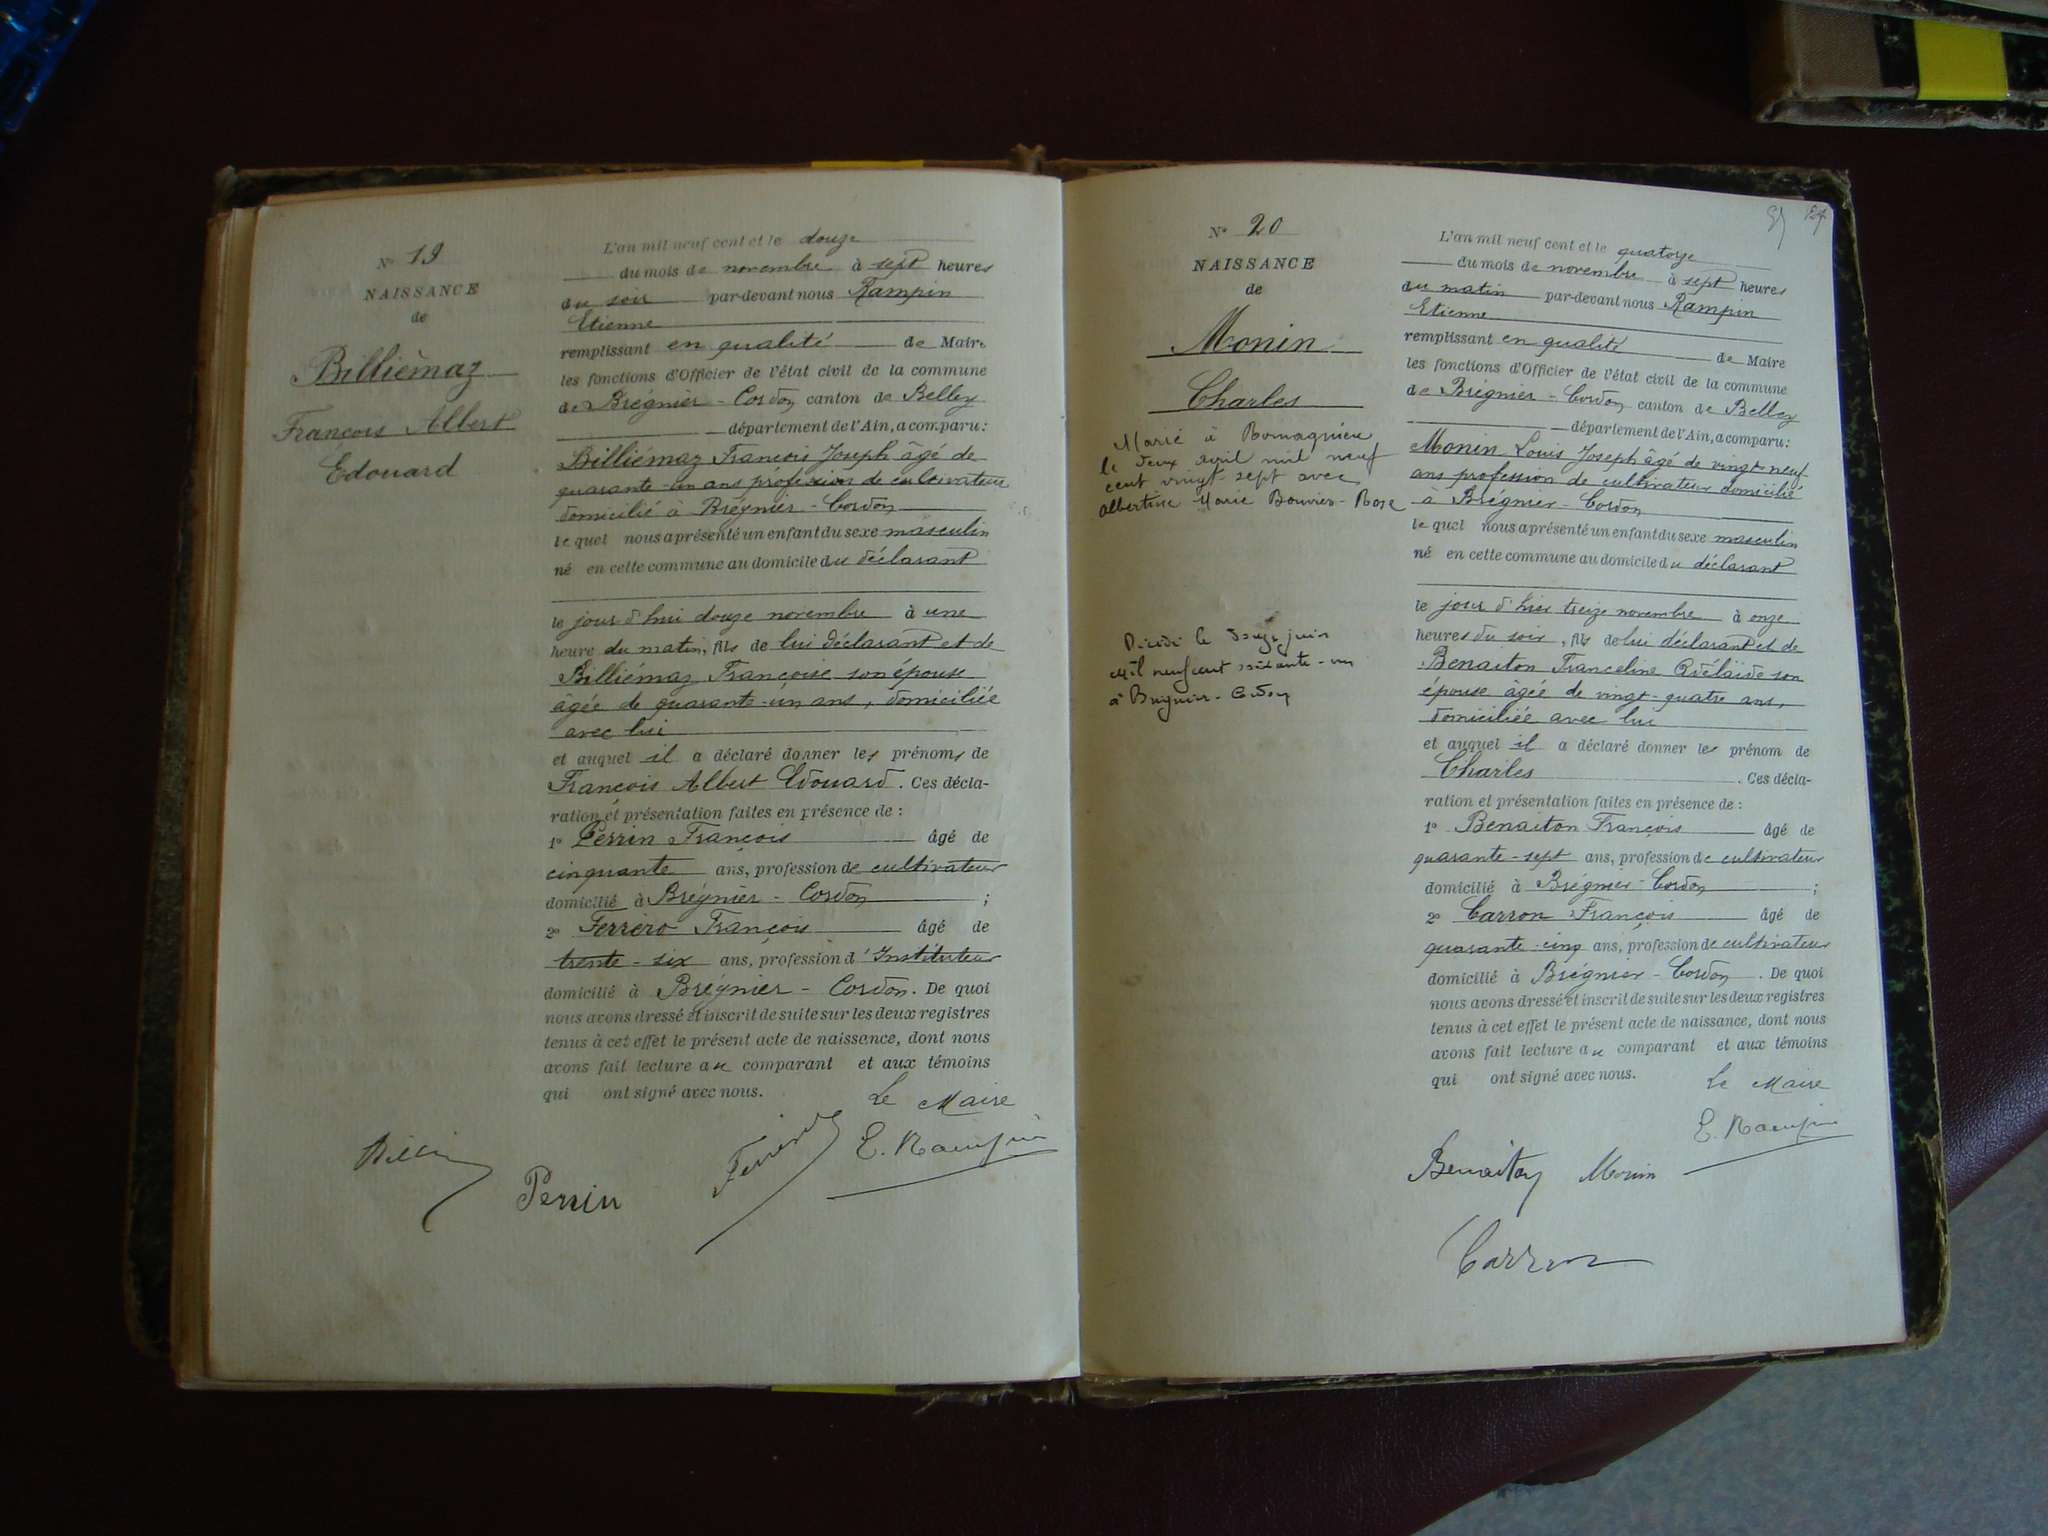 N° 19
NAISSANCE
de
Billiémaz
François Albert
Edouard
L'an mil neuf cent et le douze
du mois de novembre à sept heures
du soir par-devant nous Rampin
Etienne
remplissant en qualité de Maire
les fonctions d'Officier de l'état civil de la commune
de Brégnier-Cordon canton de Belley
département de l'Ain, a comparu :
Billiémaz François Joseph âgé de
quarante-un ans profession de cultivateur
domicilié à Brégnier-Cordon
le quel nous a présenté un enfant du sexe masculin
né en cette commune au domicile du déclarant
le jour d'hui douze novembre à une
heure du matin, fils de lui déclarant et de
Billiémaz Françoise son épouse
âgée de quarante-un ans, domiciliée
avec lui
et auquel il a déclaré donner les prénoms de
François Albert Edouard. Ces décla-
ration et présentation faites en présence de :
1° Perrin François âgé de
cinquante ans, profession de cultivateur
domicilié à Brégnier-Cordon ;
2° Ferrero François âgé de
trente-six ans, profession d'Instituteur
domicilié à Brégnier-Cordon. De quoi
nous avons dressé et inscrit de suite sur les deux registres
tenus à cet effet le présent acte de naissance, dont nous
avons fait lecture au comparant et aux témoins
qui ont signé avec nous.
Le Maire
E. Rampin
Perrin
N° 20
NAISSANCE
de
Monin
Charles
Marié à Romagnieu
le deux avril mil neuf
cent vingt-sept avec
Albertine Marie Bouvier-Rose
Décédé le douze juin
mil neuf cent soixante-un
à Brégnier-Cordon
L'an mil neuf cent et le quatorze
du mois de novembre à sept heures
du matin par-devant nous Rampin
Etienne
remplissant en qualité de Maire
les fonctions d'Officier de l'état civil de la commune
de Brégnier-Cordon canton de Belley
département de l'Ain, a comparu :
Monin Louis Joseph âgé de vingt-neuf
ans profession de cultivateur domicilié
à Brégnier-Cordon
le quel nous a présenté un enfant du sexe masculin
né en cette commune au domicile du déclarant
le jour d'hier treize novembre à onze
heures du soir, fils de lui déclarant et de
Benaiton Franceline Adélaïde son
épouse âgée de vingt-quatre ans,
domiciliée avec lui
et auquel il a déclaré donner les prénom de
Charles. Ces décla-
ration et présentation faites en présence de :
1° Benaiton François âgé de
quarante-sept ans, profession de cultivateur
domicilié à Brégnier-Cordon ;
2° Carron François âgé de
quarante-cinq ans, profession de cultivateur
domicilié à Brégnier-Cordon. De quoi
nous avons dressé et inscrit de suite sur les deux registres
tenus à cet effet le présent acte de naissance, dont nous
avons fait lecture au comparant et aux témoins
qui ont signé avec nous.
Le Maire
E. Rampin
Benaiton Monin
Carron